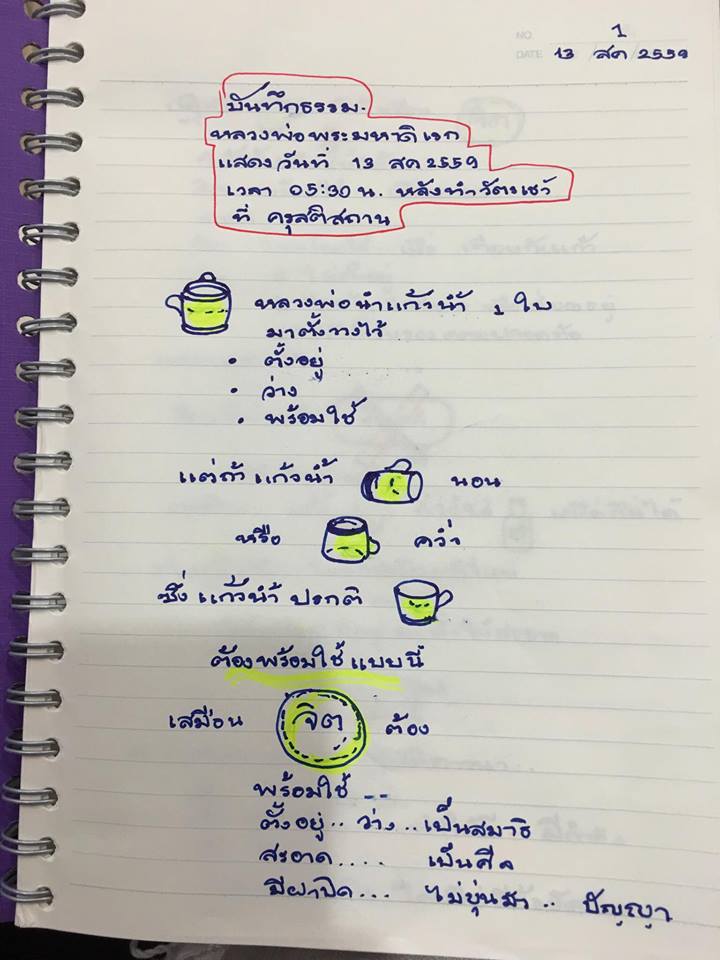 NO. 1
DATE 13 / สค / 2559
บันทึกธรรม.
หลวงพ่อพระมหาดิเรก
แสดงวันที่ 13 สค 2559
เวลา 05:30 น. หลังทำวัตรเช้า
ที่ ครุสติสถาน
หลวงพ่อนำแก้วน้ำ 1 ใบ
มาตั้งวางไว้
• ตั้งอยู่
• ว่าง
• พร้อมใช้
แต่ถ้า แก้วน้ำ นอน
หรือ คว่ำ
ซึ่ง แก้วน้ำ ปรกติ
ต้องพร้อมใช้แบบนี้
เสมือน จิต ต้อง
พร้อมใช้ --
ตั้งอยู่.. ว่าง.. เป็นสมาธิ
สะอาด.... เป็นศีล
มีฝาปิด... ไม่ขุ่นมัว.. ปัญญา